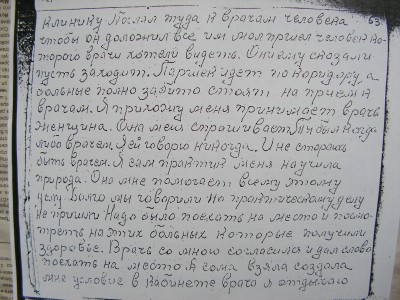 клинику Послал туда к врачам человека 63
чтобы он доложил все им мол пришел человек ко-
торого врачи хотели видеть. Они ему сказали
пусть заходит. Паршек идет по коридору, а
больные полно забито стоят на прием к
врачам. Я прихожу меня принимает врачь
женщина. Она меня спрашивает. Ты был когда
либо врачем. Я ей говорю никогда. И не стараюсь
быть врачем. Я сам практик меня научила
природа. Оно мне помогает всему этому
делу. Долго мы говорили На практическому делу
не пришли Надо было поехать на место и посмо-
треть на тих больных которые получили
здоровье. Врачь со мною согласился и дал слово
поехать на место А сама взяла создала
мне условие в кабинете врачо я отдыхаю